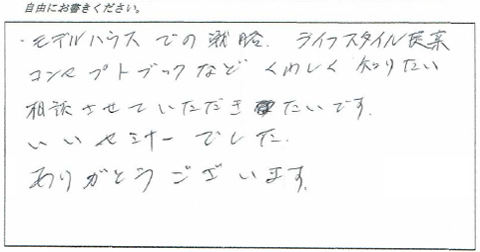 自由にお書きください。
・モデルハウスでの戦略、ライフスタイル提案
コンセプトブックなどくわしく知りたい
相談させていただきたいです。
いいセミナーでした。
ありがとうございます。